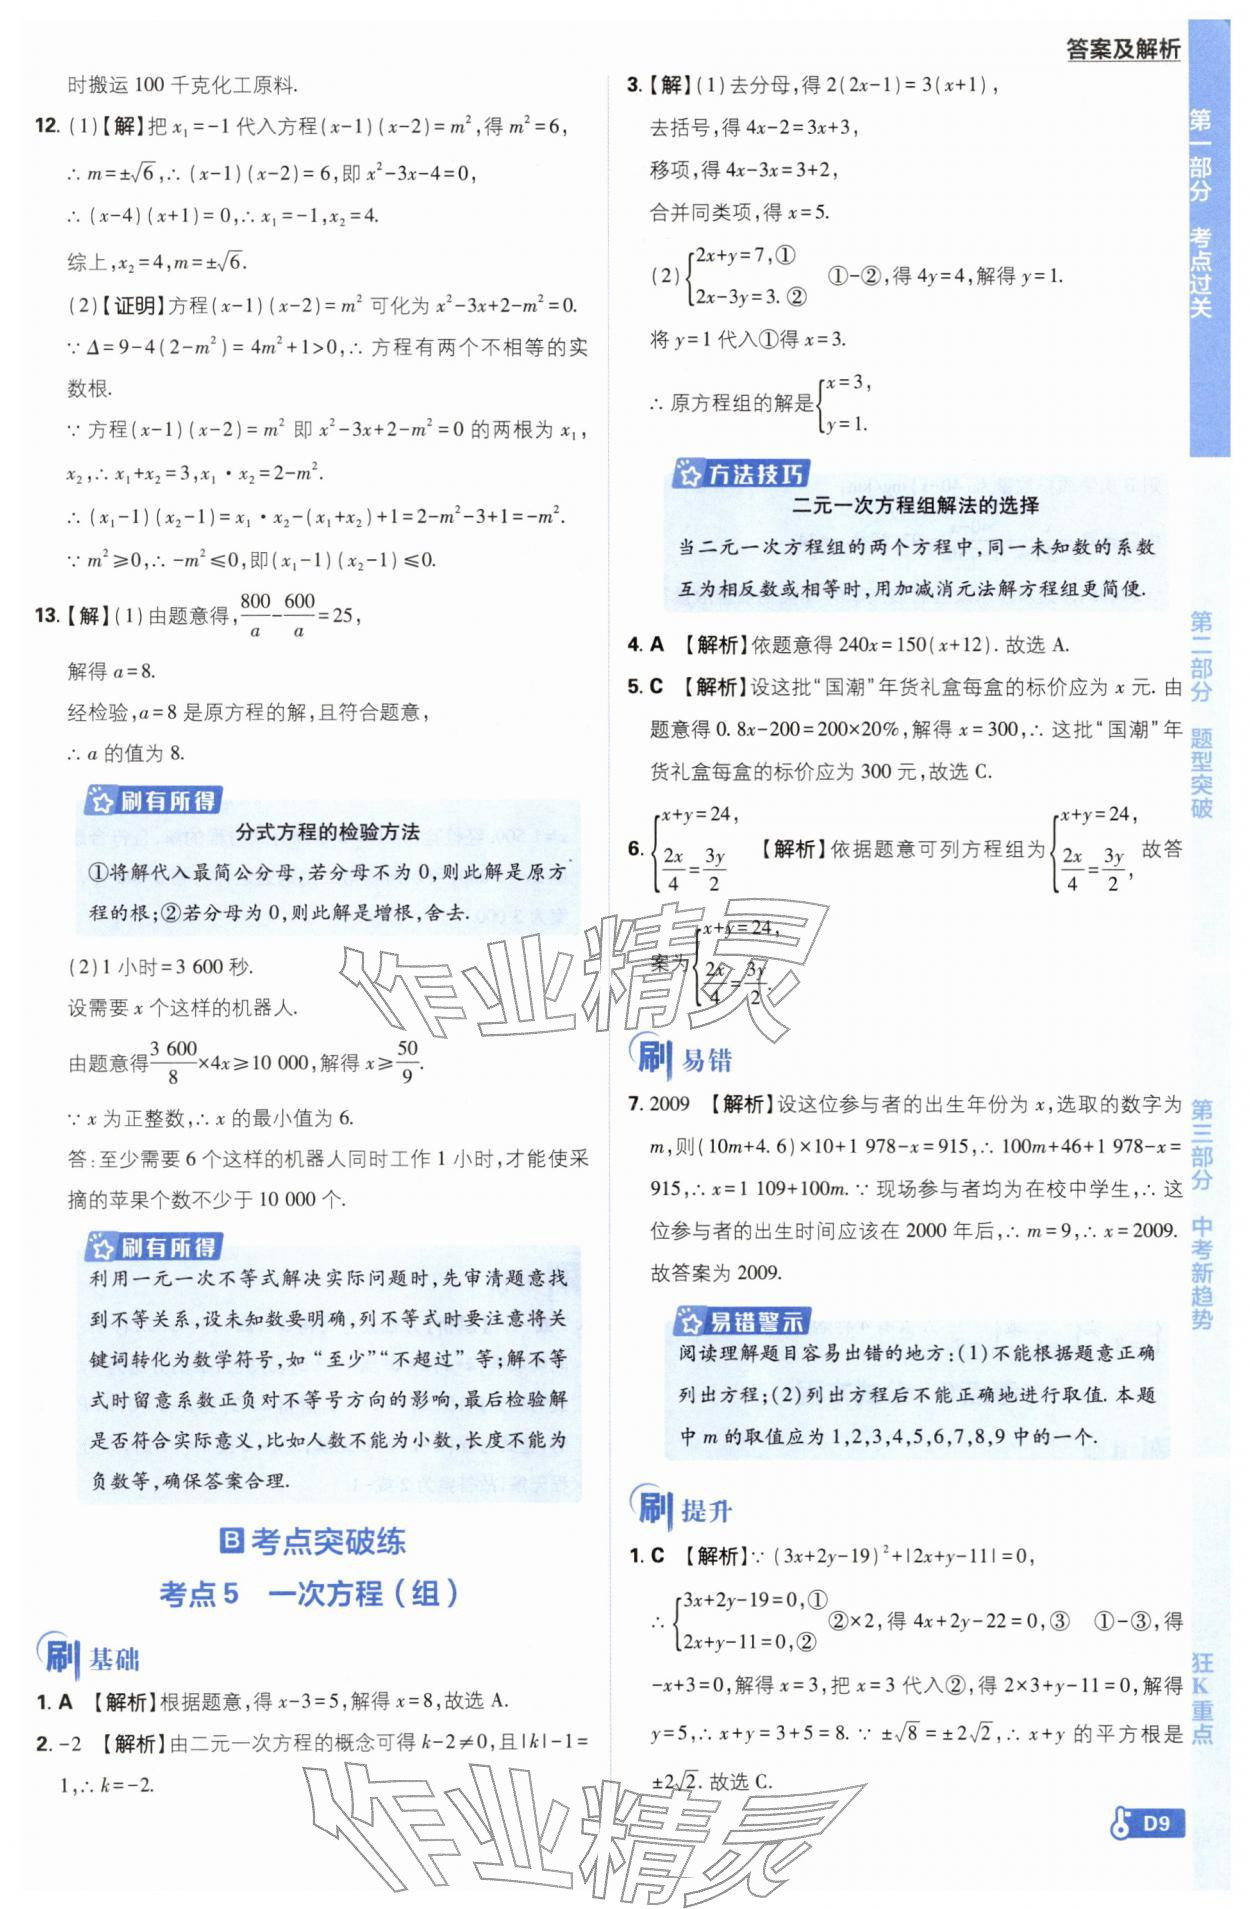 答案及解析
时搬运 100 千克化工原料.
12. (1)【解】把 x₁=-1 代入方程(x-1)(x-2)=m²,得 m²=6,
∴ m=±√6,∴ (x-1)(x-2)=6,即 x²-3x-4=0,
∴ (x-4)(x+1)=0,∴ x₁=-1,x₂=4.
综上,x₂=4,m=±√6.
(2)【证明】方程(x-1)(x-2)=m² 可化为 x²-3x+2-m²=0.
∵ Δ=9-4(2-m²)=4m²+1>0,∴ 方程有两个不相等的实
数根.
∵ 方程(x-1)(x-2)=m² 即 x²-3x+2-m²=0 的两根为 x₁,
x₂,∴ x₁+x₂=3,x₁·x₂=2-m².
∴ (x₁-1)(x₂-1)=x₁·x₂-(x₁+x₂)+1=2-m²-3+1=-m².
∵ m²≥0,∴ -m²≤0,即(x₁-1)(x₂-1)≤0.
13.【解】(1)由题意得,800/a-600/a=25,
解得 a=8.
经检验,a=8 是原方程的解,且符合题意,
∴ a 的值为 8.
刷有所得
分式方程的检验方法
①将解代入最简公分母,若分母不为 0,则此解是原方
程的根;②若分母为 0,则此解是增根,舍去.
(2)1 小时=3 600 秒.
设需要 x 个这样的机器人.
由题意得3 600/8×4x≥10 000,解得 x≥50/9.
∵ x 为正整数,∴ x 的最小值为 6.
答:至少需要 6 个这样的机器人同时工作 1 小时,才能使采
摘的苹果个数不少于 10 000 个.
刷有所得
利用一元一次不等式解决实际问题时,先审清题意找
到不等关系,设未知数要明确,列不等式时要注意将关
键词转化为数学符号,如“至少”“不超过”等;解不等
式时留意系数正负对不等号方向的影响,最后检验解
是否符合实际意义,比如人数不能为小数,长度不能为
负数等,确保答案合理.
B 考点突破练
考点 5 一次方程(组)
刷基础
1. A 【解析】根据题意,得 x-3=5,解得 x=8,故选 A.
2. -2 【解析】由二元一次方程的概念可得 k-2≠0,且|k|-1=
1,∴ k=-2.
3.【解】(1)去分母,得 2(2x-1)=3(x+1),
去括号,得 4x-2=3x+3,
移项,得 4x-3x=3+2,
合并同类项,得 x=5.
(2){2x+y=7,① 2x-3y=3.② ①-②,得 4y=4,解得 y=1.
将 y=1 代入①得 x=3.
∴ 原方程组的解是{x=3, y=1.
方法技巧
二元一次方程组解法的选择
当二元一次方程组的两个方程中,同一未知数的系数
互为相反数或相等时,用加减消元法解方程组更简便.
4. A 【解析】依题意得 240x=150(x+12).故选 A.
5. C 【解析】设这批“国潮”年货礼盒每盒的标价应为 x 元.由
题意得 0.8x-200=200×20%,解得 x=300,∴ 这批“国潮”年
货礼盒每盒的标价应为 300 元,故选 C.
6. {x+y=24, 2x/4=3y/2 【解析】依据题意可列方程组为{x+y=24, 2x/4=3y/2, 故答
案为{x+y=24, 2x/4=3y/2.
刷易错
7. 2009 【解析】设这位参与者的出生年份为 x,选取的数字为
m,则(10m+4.6)×10+1 978-x=915,∴ 100m+46+1 978-x=
915,∴ x=1 109+100m.∵ 现场参与者均为在校中学生,∴ 这
位参与者的出生时间应该在 2000 年后,∴ m=9,∴ x=2009.
故答案为 2009.
易错警示
阅读理解题目容易出错的地方:(1)不能根据题意正确
列出方程;(2)列出方程后不能正确地进行取值.本题
中 m 的取值应为 1,2,3,4,5,6,7,8,9 中的一个.
刷提升
1. C 【解析】∵ (3x+2y-19)²+|2x+y-11|=0,
∴ {3x+2y-19=0,① 2x+y-11=0,② ②×2,得 4x+2y-22=0,③ ①-③,得
-x+3=0,解得 x=3,把 x=3 代入②,得 2×3+y-11=0,解得
y=5,∴ x+y=3+5=8.∵ ±√8=±2√2,∴ x+y 的平方根是
±2√2.故选 C.
第一部分 考点过关
第二部分 题型突破
第三部分 中考新趋势
狂K重点
D9
作业精灵
作业精灵